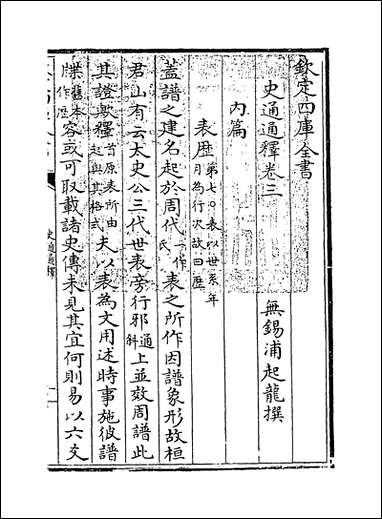 欽定四庫全書
史通通釋卷三 無錫浦起龍撰
內篇
表歷 第七○表以世系年月為行次故曰歷
蓋譜之建名起於周代 一作氏 表之所作因譜象形故桓
君山有云太史公三代世表旁行邪 通斜 上並效周譜此
其證歟釋 首原表所由起與其格式 夫以表為文用述時事施彼譜
牒 舊本作歷 容或可取載諸史傳未見其宜何則易以六爻
史通通釋